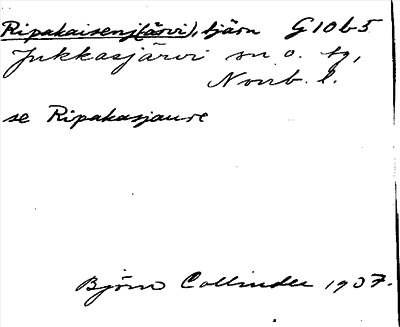 Ripakaisenj(ärvi), tjärn G10b5
Jukkasjärvi sn o. tg,
Norrb. l.
se Ripakasjaure
Björn Collinder 1907.